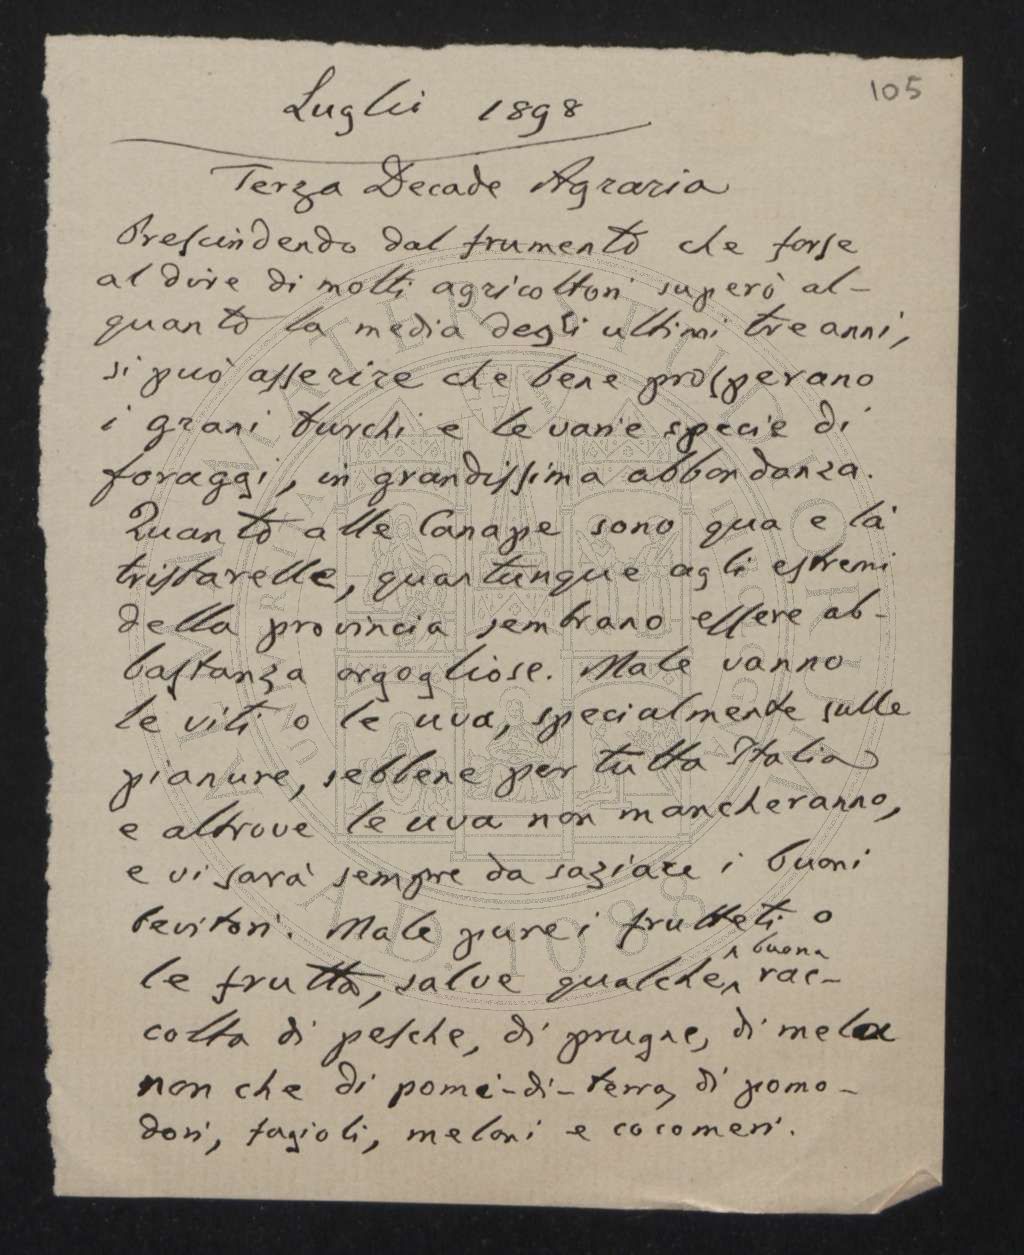 105
Luglio 1898
Terza Decade Agraria
Prescindendo dal frumento che forse
al dire di molti agricoltori superò al-
quanto la media degli ultimi tre anni,
si può asserire che bene prosperano
i grani turchi e le varie specie di
foraggi, in grandissima abbondanza.
Quanto alle Canape sono qua e là
tristarelle, quantunque agli estremi
della provincia sembrano essere ab-
bastanza orgogliose. Male vanno
le viti o le uva, specialmente sulle
pianure, sebbene per tutta Italia
e altrove le uva non mancheranno,
e vi sarà sempre da saziare i buoni
bevitori. Male pure i frutteti o
le frutta, salve qualche buona rac-
colta di pesche, di prugne, di mela
non che di pomi-di-terra, di pomo-
dori, fagioli, meloni e cocomeri.
ALMA MATER STUDIORUM
A.D. 1088